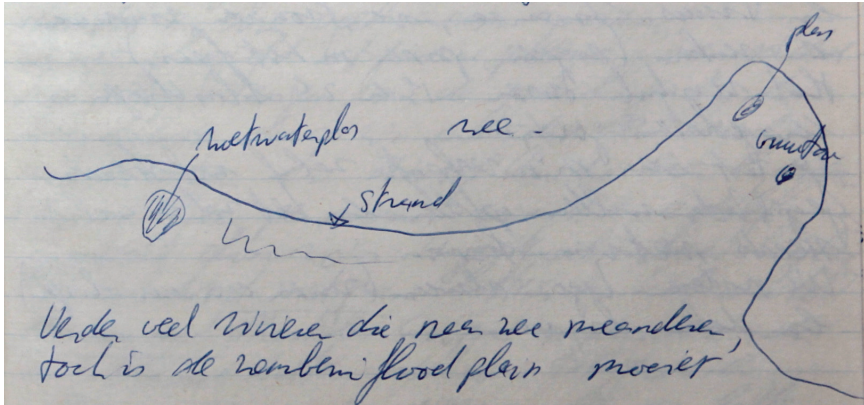 plas
zoetwaterplas
zee
strand
Verder veel rivieren die naar zee meanderen,
toch is de zambezi flood plain mooier